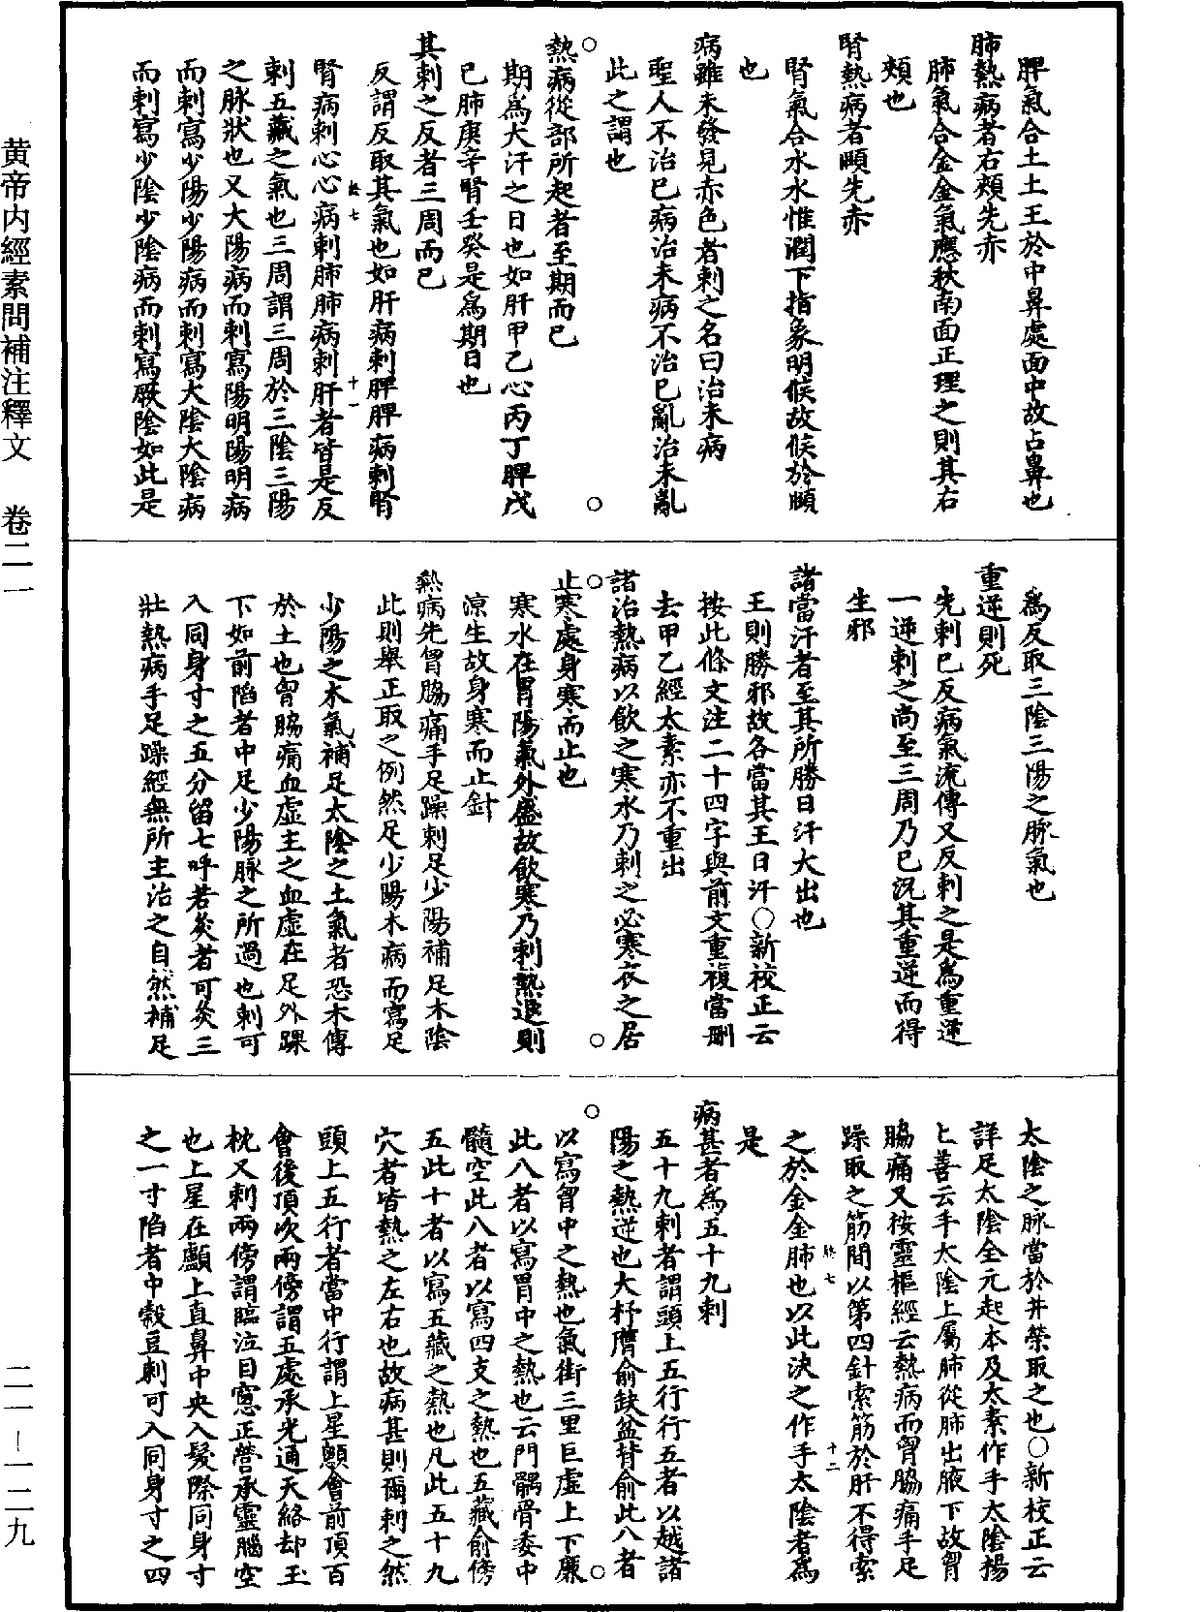 脾氣合土土王於中鼻處面中故占鼻也
肺熱病者右頰先赤
肺氣合金金氣應秋南面正理之則其右
頰也
腎熱病者頤先赤
腎氣合水水惟潤下指象明候故候於頤
也
病雖未發見赤色者刺之名曰治未病
聖人不治已病治未病不治已亂治未亂
此之謂也
熱病從部所起者至期而已
期爲大汗之日也如肝甲乙心丙丁脾戊
已肺庚辛腎壬癸是爲期日也
其刺之反者三周而已
反謂反取其氣也如肝病刺脾脾病刺腎
腎病刺心心病刺肺肺病刺肝者皆是反
刺五藏之氣也三周謂三周於三陰三陽
之脉狀也又大陽病而刺寫陽明陽明病
而刺寫少陽少陽病而刺寫大陰大陰病
而刺寫少陰少陰病而刺寫厥陰如此是
爲反取三陰三陽之脉氣也
重逆則死
先刺已反病氣流傳又反刺之是爲重逆
一逆刺之尚至三周乃已況其重逆而得
生邪
諸當汗者至其所勝日汗大出也
王則勝邪故各當其王日汗○新校正云
按此條文注二十四字與前文重複當刪
去甲乙經太素亦不重出
諸治熱病以飲之寒水乃刺之必寒衣之居
止寒處身寒而止也
寒水在胃陽氣外盛故飲寒乃刺熱退則
涼生故身寒而止針
熱病先胷脇痛手足躁刺足少陽補足太陰
此則舉正取之例然足少陽木病而寫足
少陽之木氣補足太陰之土氣者恐木傳
於土也胷脇痛血虛主之血虛在足外踝
下如前陷者中足少陽脉之所過也刺可
入同身寸之五分留七呼若灸者可灸三
壯熱病手足躁經無所主治之自然補足
太陰之脉當於井榮取之也○新校正云
詳足太陰全元起本及太素作手太陰楊
上善云手太陰上屬肺從肺出腋下故胷
脇痛又按靈樞經云熱病而胷脇痛手足
躁取之筋間以第四針索筋於肝不得索
之於金金肺也以此決之作手太陰者爲
是
病甚者爲五十九刺
五十九刺者謂頭上五行行五者以越諸
陽之熱逆也大杼膺俞缺盆背俞此八者
以寫胷中之熱也氣街三里巨虛上下廉
此八者以寫胃中之熱也云門髃骨委中
髓空此八者以寫四支之熱也五藏俞傍
五此十者以寫五藏之熱也凡此五十九
穴者皆熱之左右也故病甚則爾刺之然
頭上五行者當中行謂上星顖會前頂百
會後頂次兩傍謂五處承光通天絡却玉
枕又刺兩傍謂臨泣目窻正營承靈腦空
也上星在顱上直鼻中央入髮際同身寸
之一寸陷者中穀豆刺可入同身寸之四
黄帝内經素問補注釋文　卷二一
二一—一二九